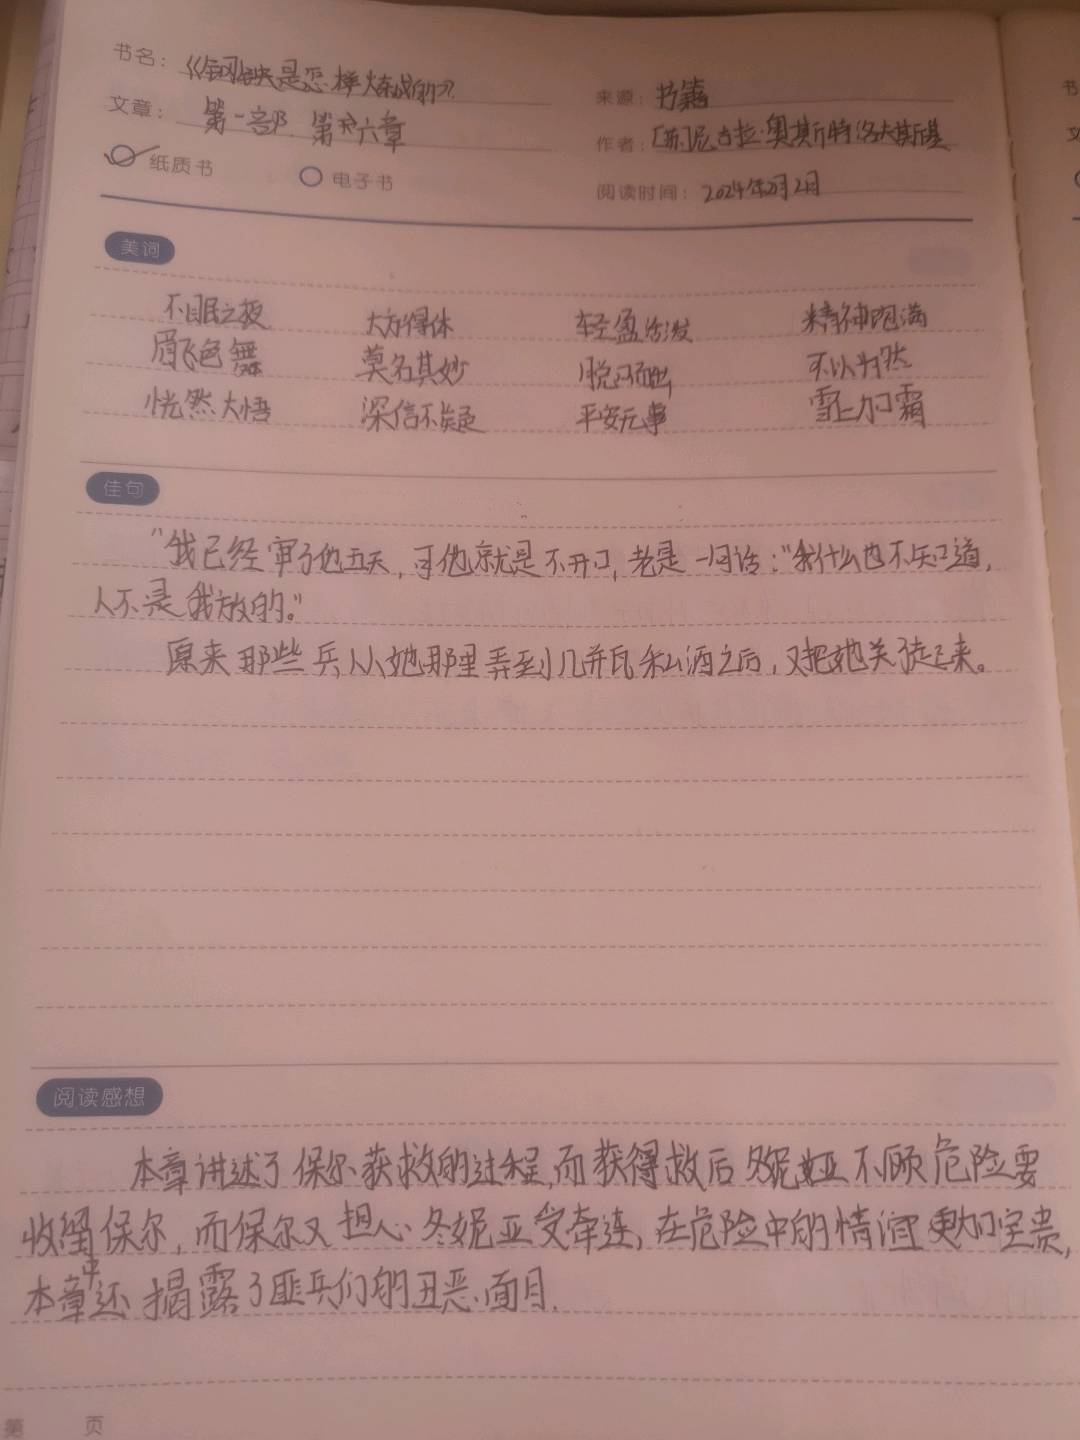 书名：《钢铁是怎样炼成的》
来源：书籍
文章：第一部 第六章
作者：[苏]尼古拉·奥斯特洛夫斯基
纸质书 电子书
阅读时间：2024年2月2日
美词
不眠之夜 大方得体 轻盈活泼 精神饱满
眉飞色舞 莫名其妙 脱口而出 不以为然
恍然大悟 深信不疑 平安无事 雪上加霜
佳句
"我已经审了他五天，可他就是不开口，老是一句话："我什么也不知道，
人不是我放的。"
原来那些兵从她那里弄到几瓶私酒之后，又把她关了起来。
阅读感想
本章讲述了保尔获救的过程，而获得救后冬妮娅不顾危险要
收留保尔，而保尔又担心冬妮亚受牵连，在危险中的情谊更加宝贵，
本章中还揭露了匪兵们的丑恶面目.
第 页